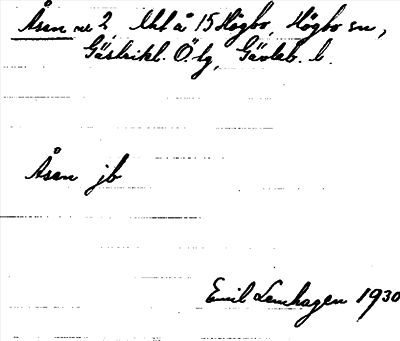 Åsen nr 2, lht å 15 Högbo, Högbo sn,
Gästrikl. Ö. tg, Gävleb. l.
Åsen jb
Emil Lenhagen 1930